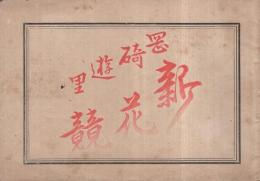 罡碕遊里
新花競